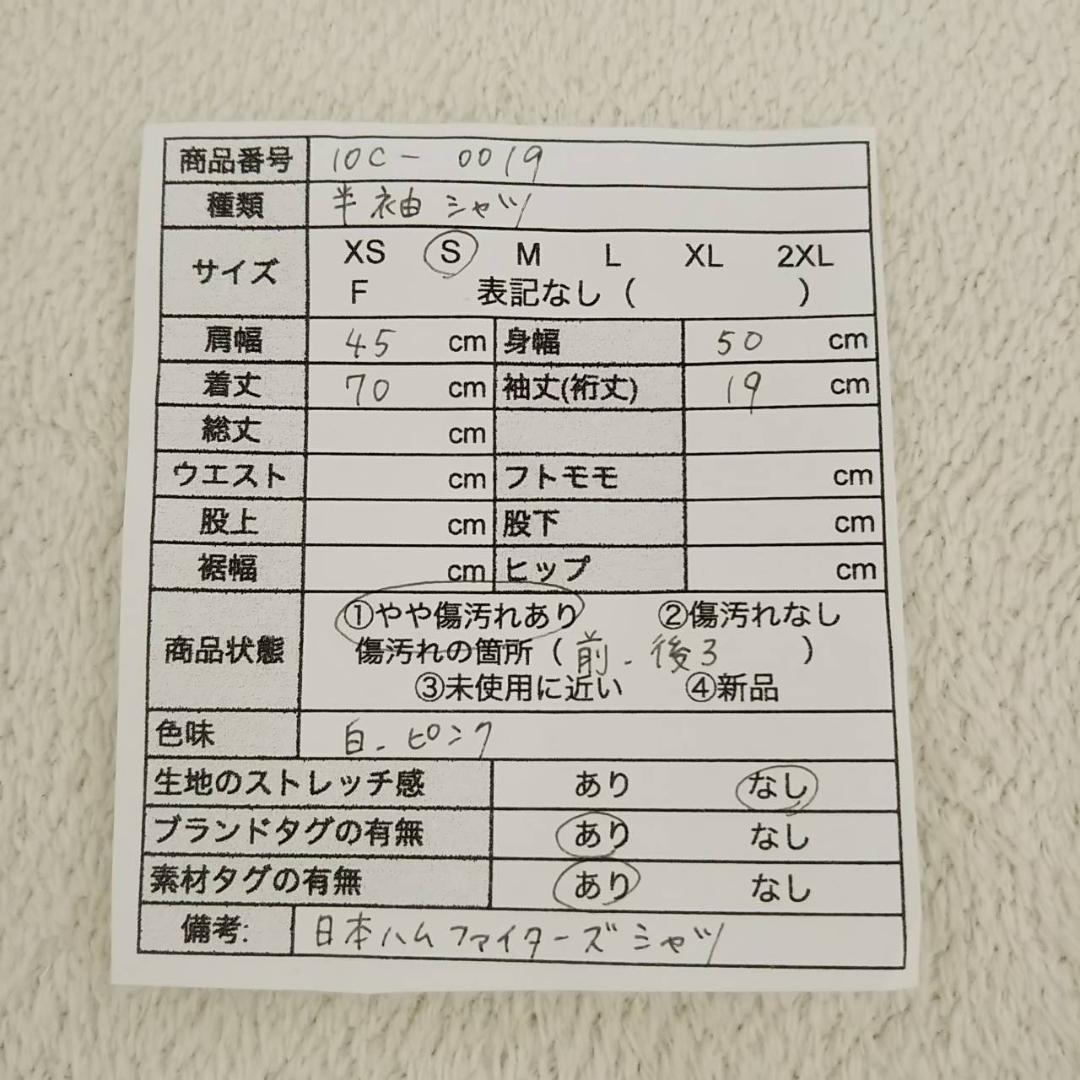 商品番号 10C- 0019
種類 半袖シャツ
サイズ XS S M L XL 2XL
F 表記なし ( )
肩幅 45 cm 身幅 50 cm
着丈 70 cm 袖丈(裄丈) 19 cm
総丈 cm
ウエスト cm フトモモ cm
股上 cm 股下 cm
裾幅 cm ヒップ cm
商品状態 ①やや傷汚れあり ②傷汚れなし
傷汚れの箇所 ( 前.後3 )
③未使用に近い ④新品
色味 白.ピンク
生地のストレッチ感 あり なし
ブランドタグの有無 あり なし
素材タグの有無 あり なし
備考: 日本ハムファイターズシャツ